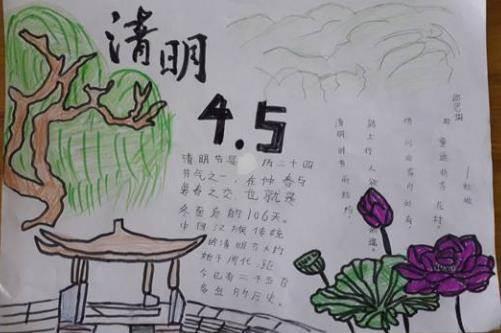 清明
4.5
清明节是 历二十四
节气之一,在仲春与
暮春之交,也就是
冬至后的106天。
中国汉族传统
的清明节大约
始于周代,距
今已有二千五百
多年的历史。
清明时节雨纷纷,
路上行人欲 魂。
借问酒家何处有,
牧童遥指杏花村。
——杜牧